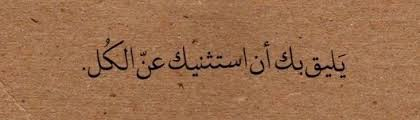 يَليق بك أن استثنيك عنّ الكُل.